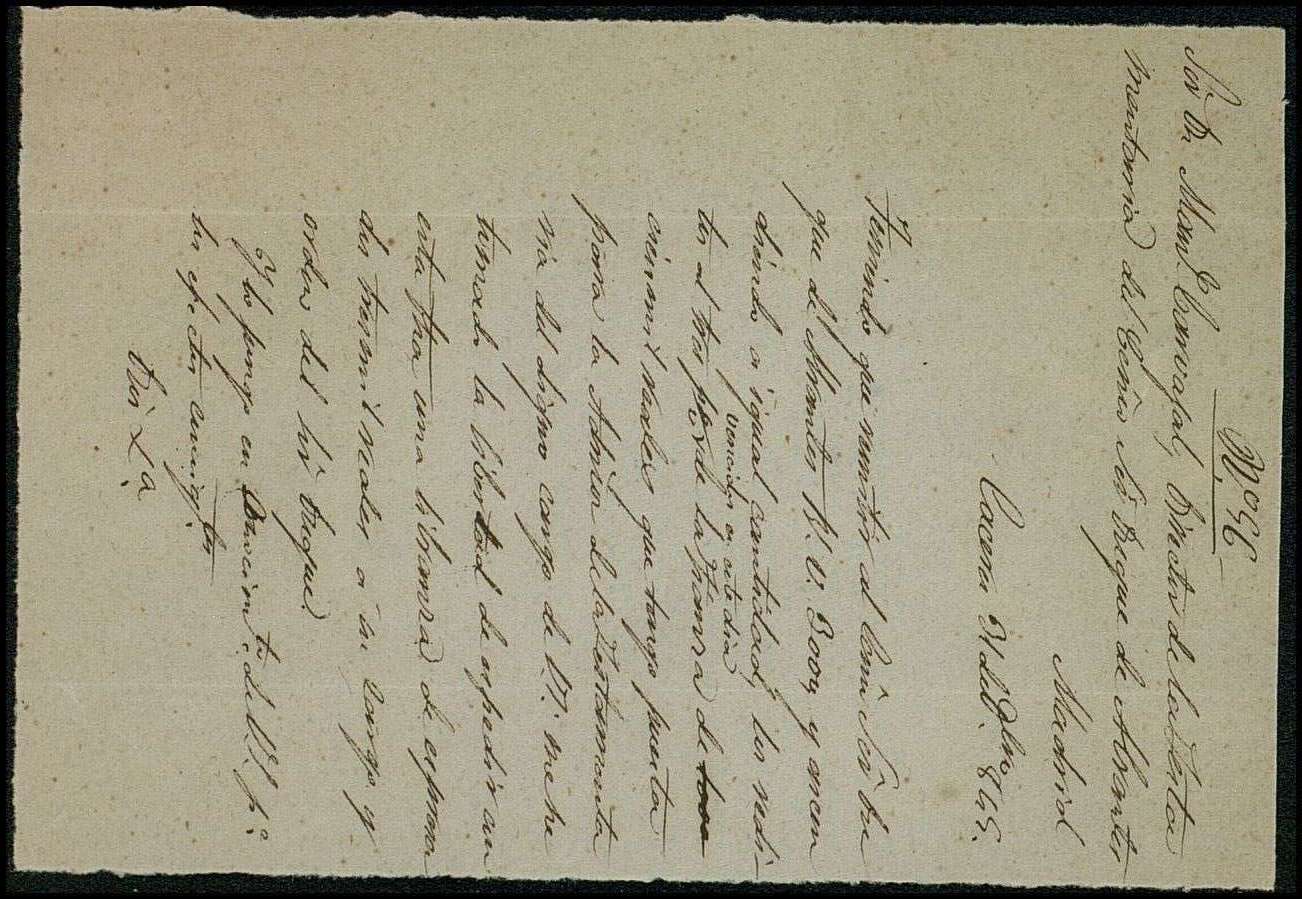 Sor Dn Manl Carvajal, Director de la Testa
mentaria del Exmo Sor Duque de Abrantes
Madrid
Caceres 31 del Dbre 866.
Teniendo que remitir al Exmo Sor Du
que de Abrantes R. V. 3000, y ascen
diendo a igual cantidad, los redi-
vencidos en este dia
tos al tres p% de la fianza de
cien mil reales que tengo puesta
para la Admon de la Testamenta
ria del digno cargo de V. me he
tomado la libertad de espedir con
esta fha una libranza de espresa
dos tres mil reales a su cargo y
orden del Sr Duque.
Y lo pongo en conocimto de V. pa
los efectos consigtes
Dios &a